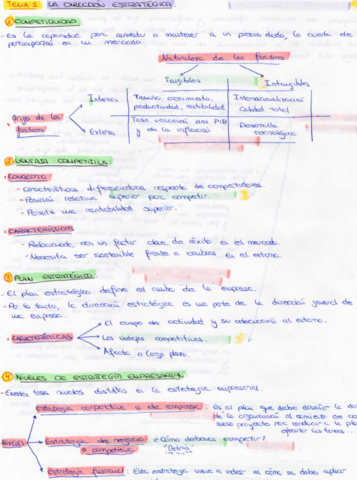 TEMA 2. LA DIRECCIÓN ESTRATÉGICA
① COMPETITIVIDAD
- Es la capacidad para aumentar o mantener a un precio dado, la cuota de
participación en un mercado.
Naturaleza de los factores
Tangibles
Intangibles
Origen de los factores
Internos
Tamaño, crecimiento, productividad, rentabilidad
Internacionalización
Calidad total
Externos
Tasa variación del PIB y de la inflación
Desarrollo tecnológico
② VENTAJA COMPETITIVA
• CONCEPTO
- Características diferenciadoras respecto de competidores
- Posición relativa superior por competir.
- Permite una rentabilidad superior.
• CARACTERÍSTICAS
- Relacionada con un factor clave de éxito en el mercado.
- Necesita ser sostenible frente a cambios en el entorno.
③ PLAN ESTRATÉGICO
- El plan estratégico define el rumbo de la empresa.
- Por lo tanto, la dirección estratégica es una parte de la dirección general de
una empresa.
CARACTERÍSTICAS
El campo de actividad y su adecuación al entorno.
Las ventajas competitivas.
Afecta a largo plazo.
④ NIVELES DE ESTRATEGIA EMPRESARIAL
- Existen tres niveles distintos en la estrategia empresarial.
NIVELES
Estrategia corporativa o de empresa: Es el plan que debe diseñar la
de la organización
Estrategia de negocio o competitiva: ¿Cómo debemos competir?
Estrategia funcional: Esta estrategia vuelve a